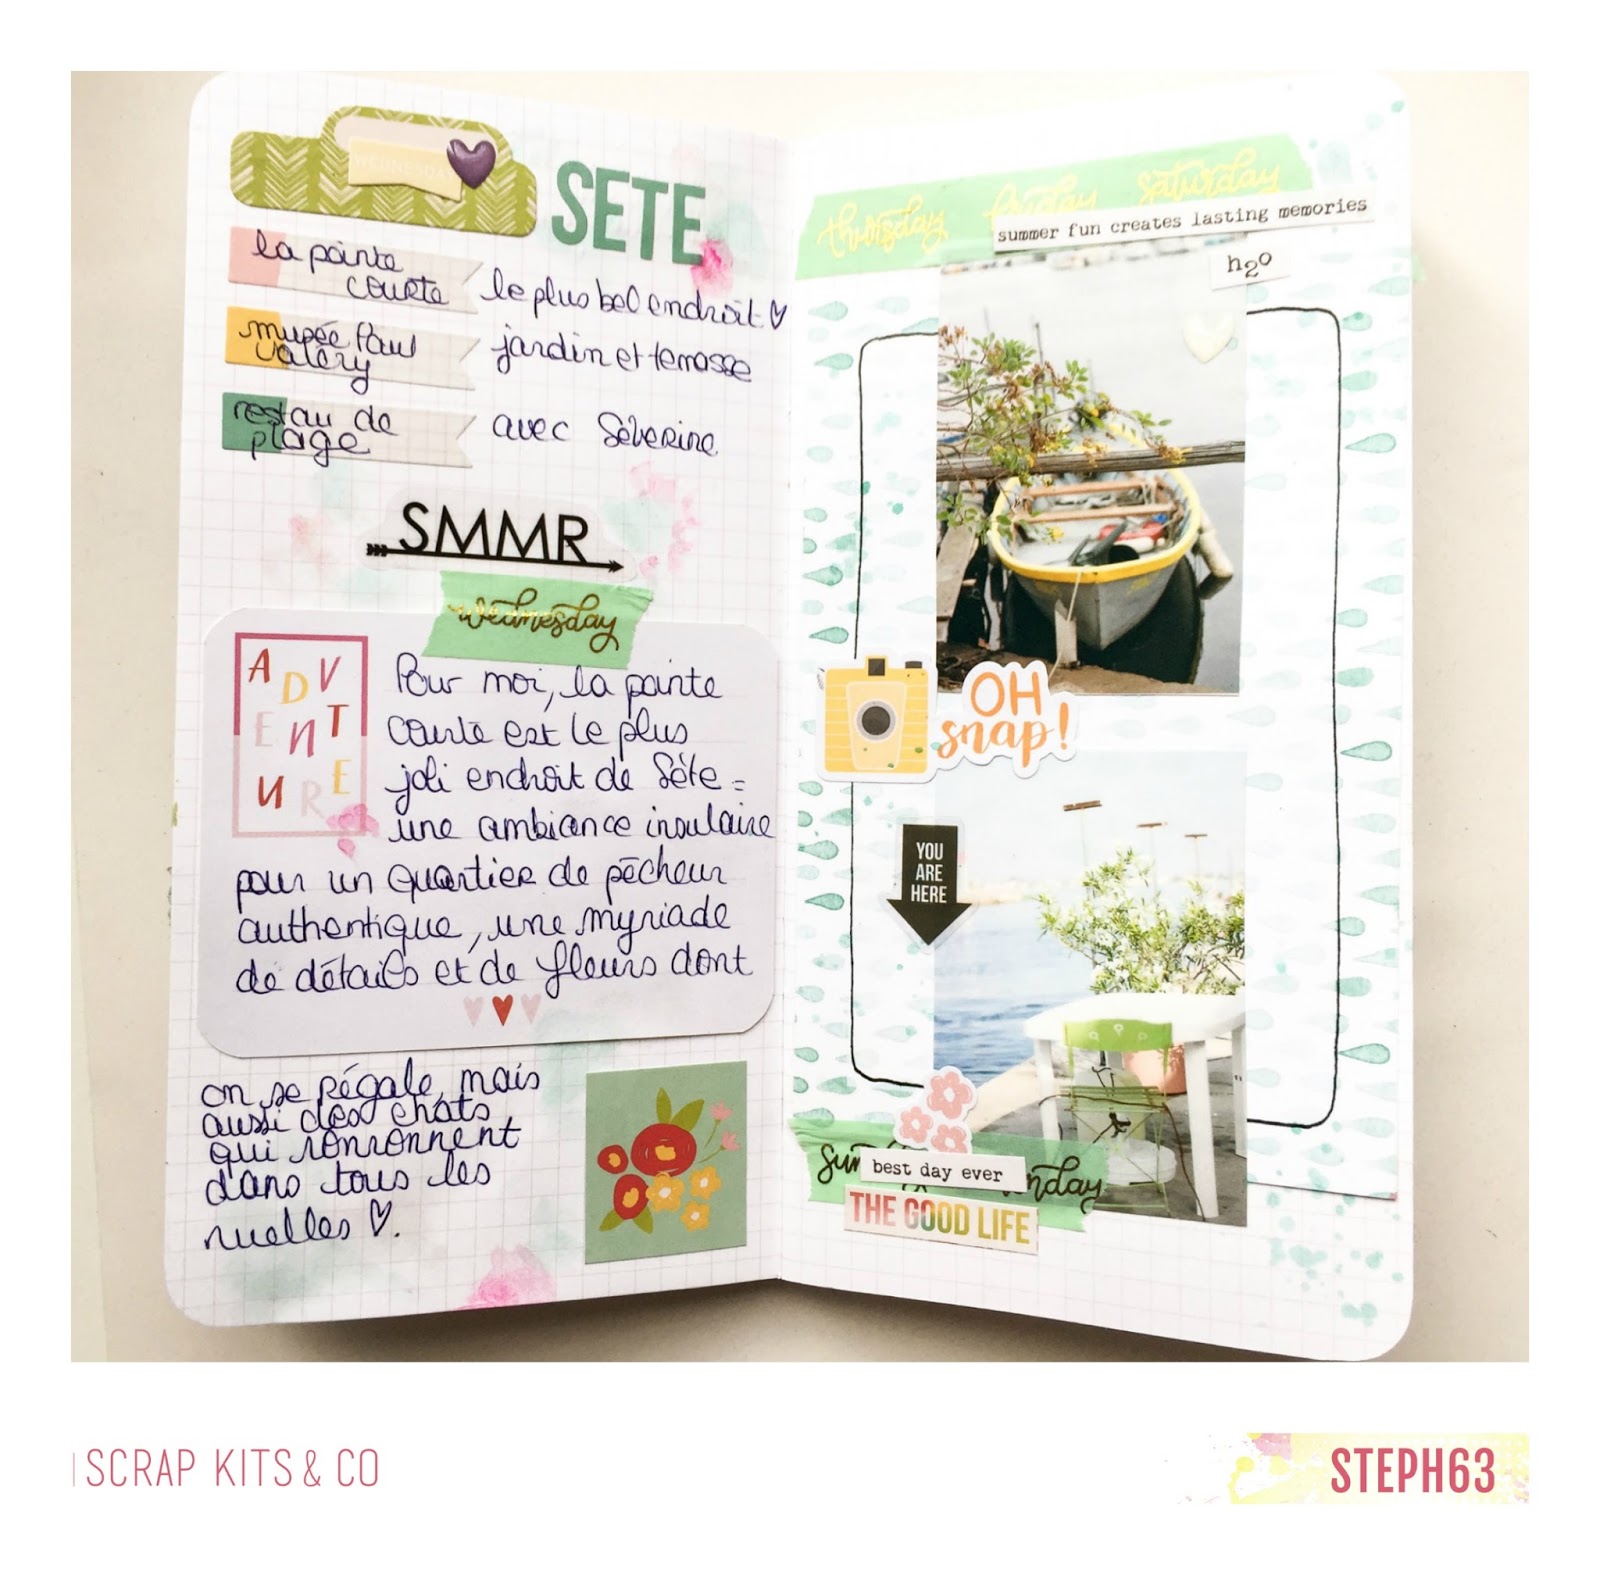 WEDNESDAY
SETE
la pointe
courte
le plus bel endroit
musée Paul
Valéry
jardin et terrasse
restau de
plage
avec Séverine
SMMR
wednesday
ADVENTURE
Pour moi, la pointe
courte est le plus
joli endroit de Sète =
une ambiance insulaire
pour un quartier de pêcheur
authentique, une myriade
de détails et de fleurs dont
on se régale, mais
aussi des chats
qui ronronnent
dans tous les
ruelles.
thursday friday saturday
summer fun creates lasting memories
h2o
OH
snap!
YOU
ARE
HERE
best day ever
THE GOOD LIFE
SCRAP KITS & CO
STEPH63